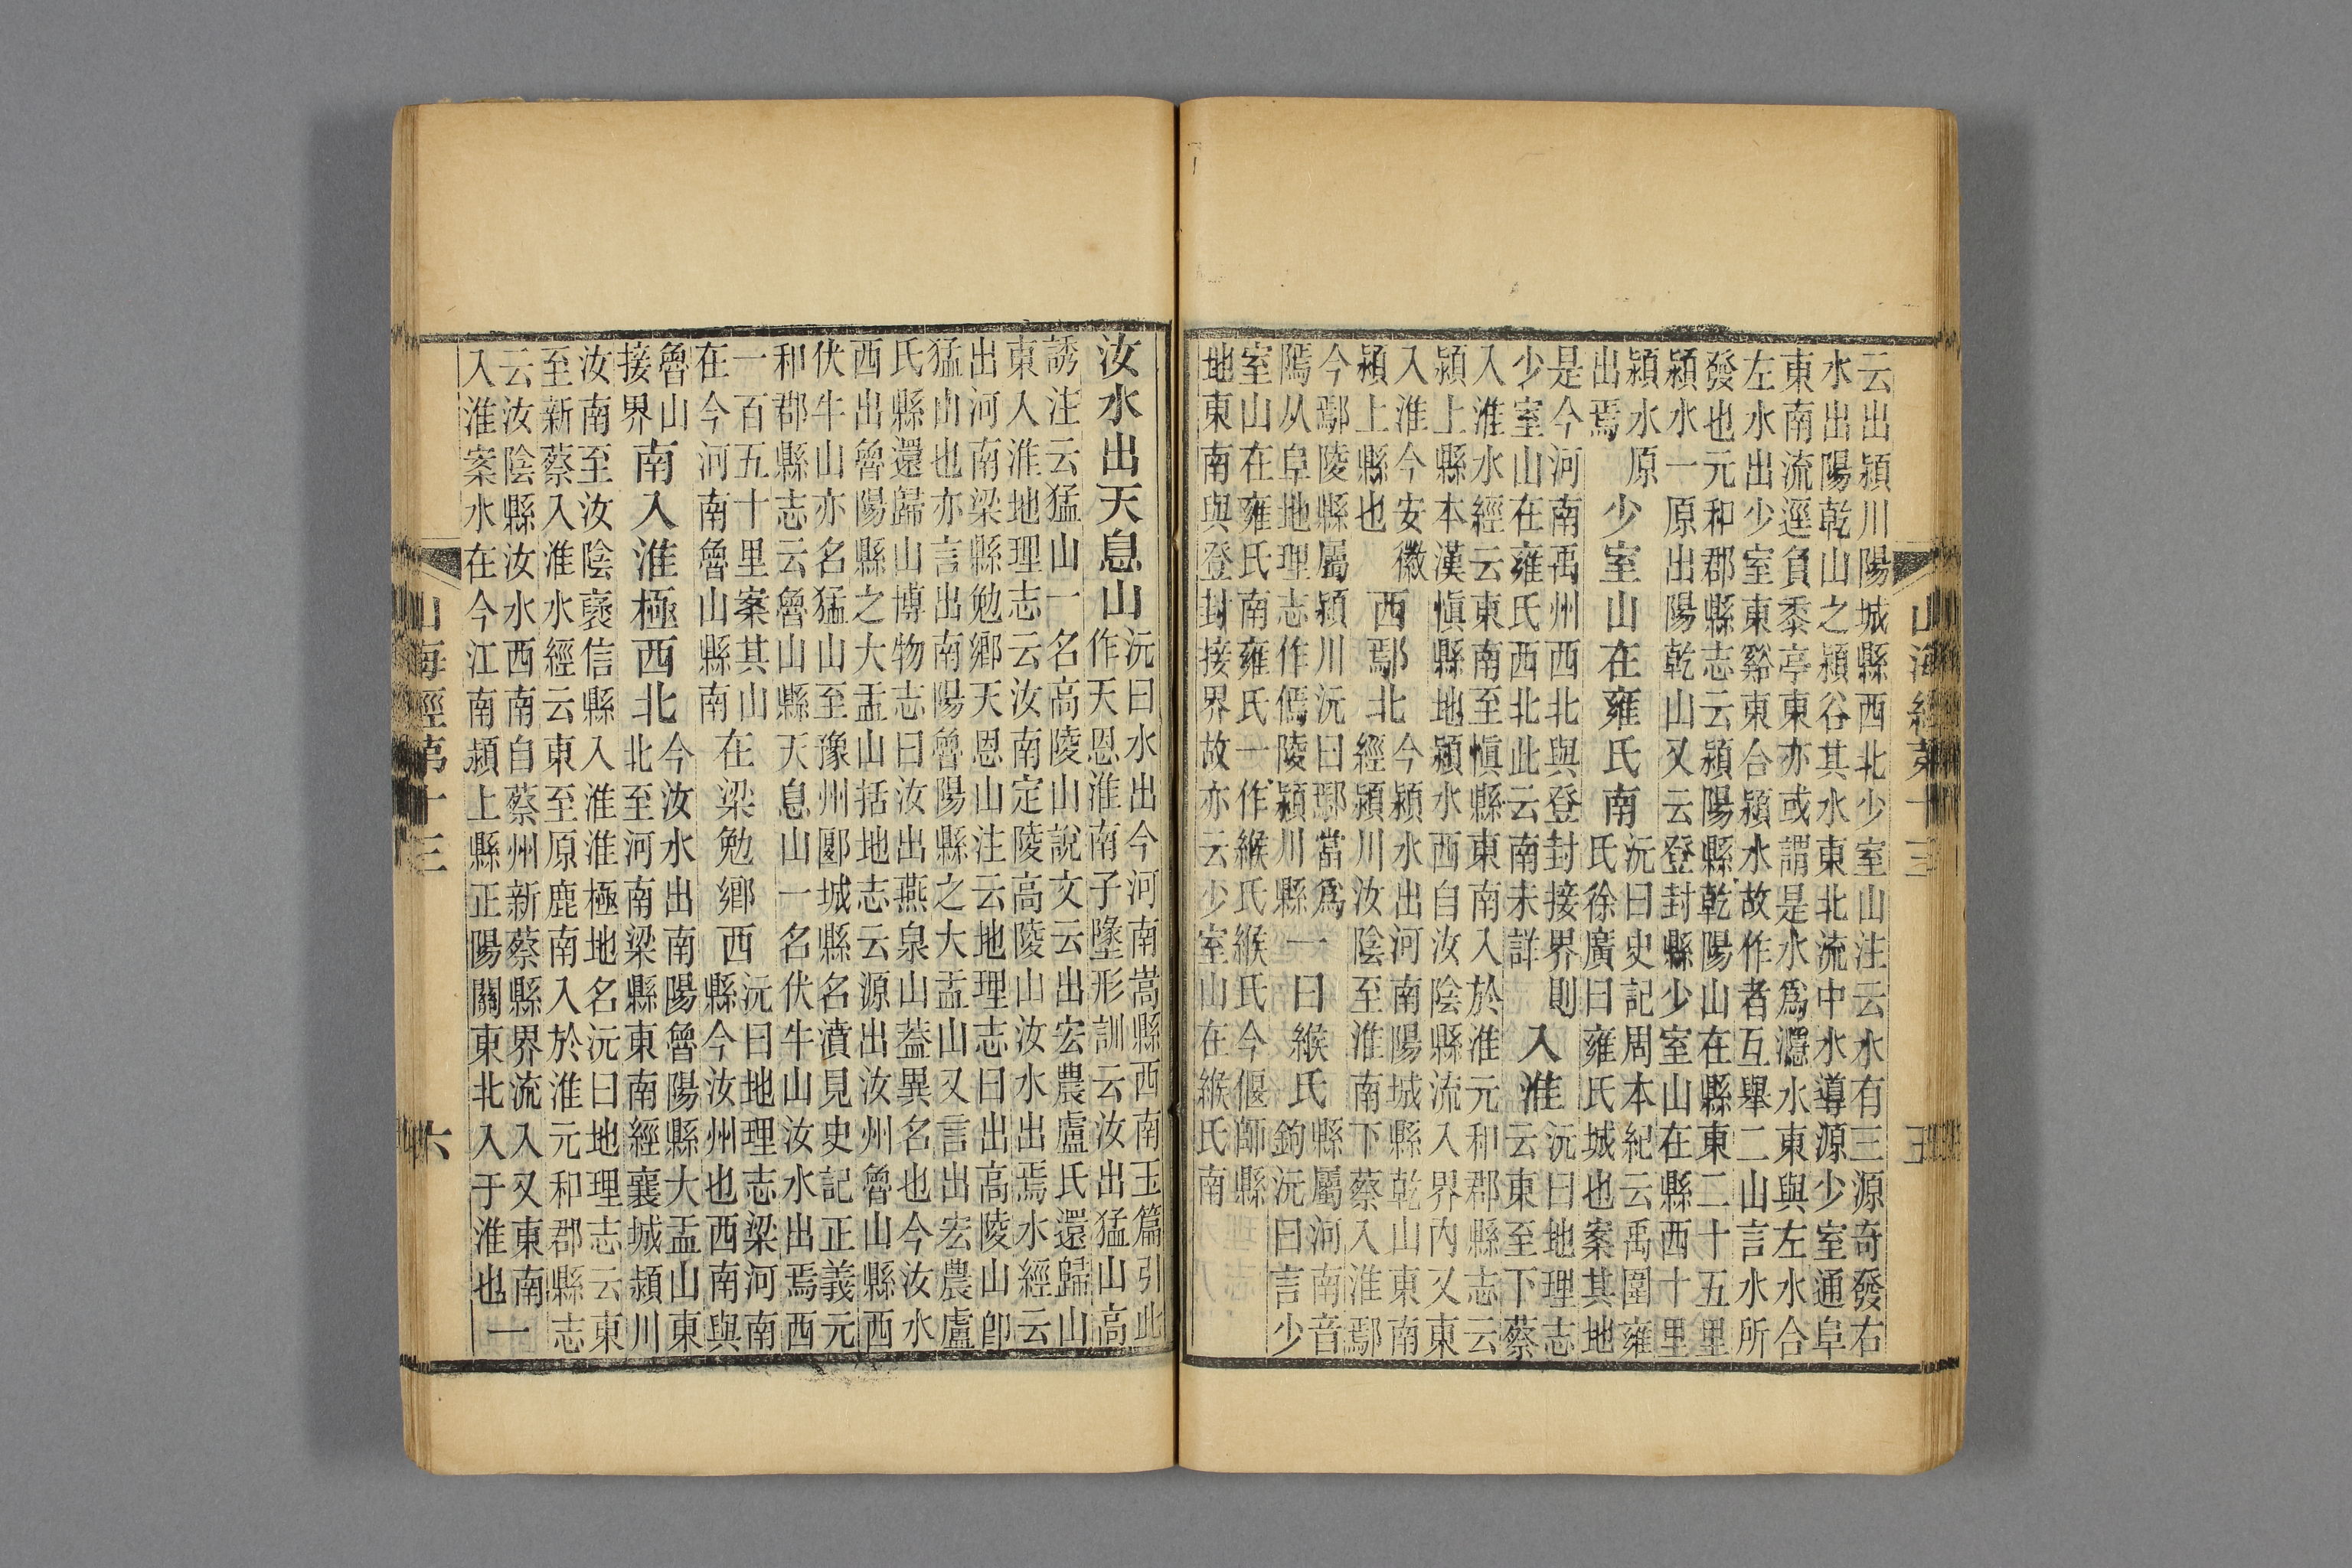 山海經第十三
五
云出潁川陽城縣西北少室山注云水有三源奇發右
水出陽乾山之潁谷其水東北流中水導源少室通阜
東南流逕負黍亭東亦或謂是水爲㶏水東與左水合
左水出少室東谿東合潁水故作者互舉二山言水所
發也元和郡縣志云潁陽縣乾陽山在縣東二十五里
潁水一原出陽乾山又云登封縣少室山在縣西十里
潁水原
出焉
少室山在雍氏南
沅曰史記周本紀云禹圍雍
氏徐廣曰雍氏城也案其地
是今河南禹州西北與登封接界則
少室山在雍氏西北此云南未詳
入淮
沅曰地理志
云東至下蔡
入淮水經云東南至慎縣東南入於淮元和郡縣志云
潁上縣本漢慎縣地潁水西自汝陰縣流入界內又東
入淮今安徽
潁上縣也
西鄢北
今潁水出河南陽城縣乾山東南
經潁川汝陰至淮南下蔡入淮鄢
今鄢陵縣屬潁川沅曰鄢當爲
隱从阜地理志作傿陵潁川縣
一曰緱氏
縣屬河南音
鉤沅曰言少
室山在雍氏南雍氏一作緱氏緱氏今偃師縣
地東南與登封接界故亦云少室山在緱氏南
汝水出天息山
沅曰水出今河南嵩縣西南玉篇引此
作天恩淮南子墬形訓云汝出猛山高
誘注云猛山一名高陵山說文云出宏農盧氏還歸山
東入淮地理志云汝南定陵高陵山汝水出焉水經云
出河南梁縣勉鄉天恩山注云地理志曰出高陵山卽
猛山也亦言出南陽魯陽縣之大盂山又言出宏農盧
氏縣還歸山博物志曰汝出燕泉山葢異名也今汝水
西出魯陽縣之大盂山括地志云源出汝州魯山縣西
伏牛山亦名猛山至豫州郾城縣名濆見史記正義元
和郡縣志云魯山縣天息山一名伏牛山汝水出焉西
一百五十里案其山
在今河南魯山縣南
在梁勉鄉西
沅曰地理志梁河南
縣今汝州也西南與
魯山
接界
南入淮極西北
今汝水出南陽魯陽縣大盂山東
北至河南梁縣東南經襄城潁川
汝南至汝陰襃信縣入淮淮極地名沅曰地理志云東
至新蔡入淮水經云東至原鹿南入於淮元和郡縣志
云汝陰縣汝水西南自蔡州新蔡縣界流入又東南
入淮案水在今江南潁上縣正陽關東北入于淮也
一
山海經第十三
六